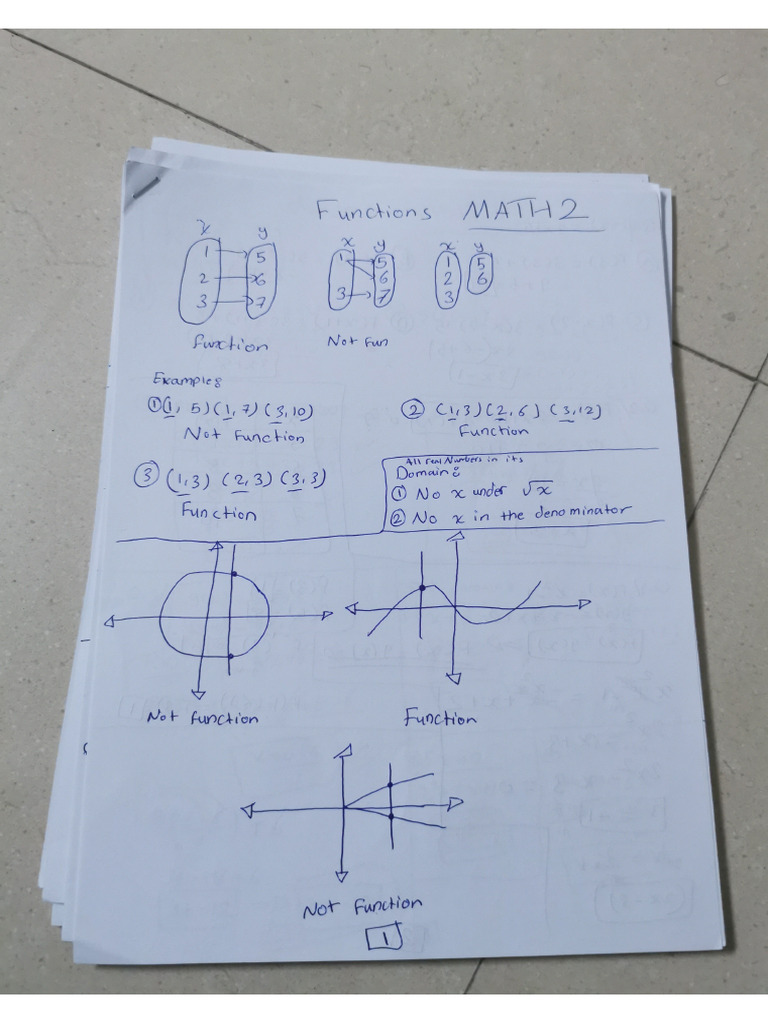 Functions MATH2
x y
1 5
2 6
3 7
Function
x y
1 5
6
3 7
Not Fun
x y
1 5
2 6
3
Examples
① (1, 5) (1, 7) (3, 10)
Not Function
② (1, 3) (2, 6) (3, 12)
Function
③ (1, 3) (2, 3) (3, 3)
Function
All real Numbers in its
Domain:
① No x under √x
② No x in the denominator
Not function
Function
Not Function
1